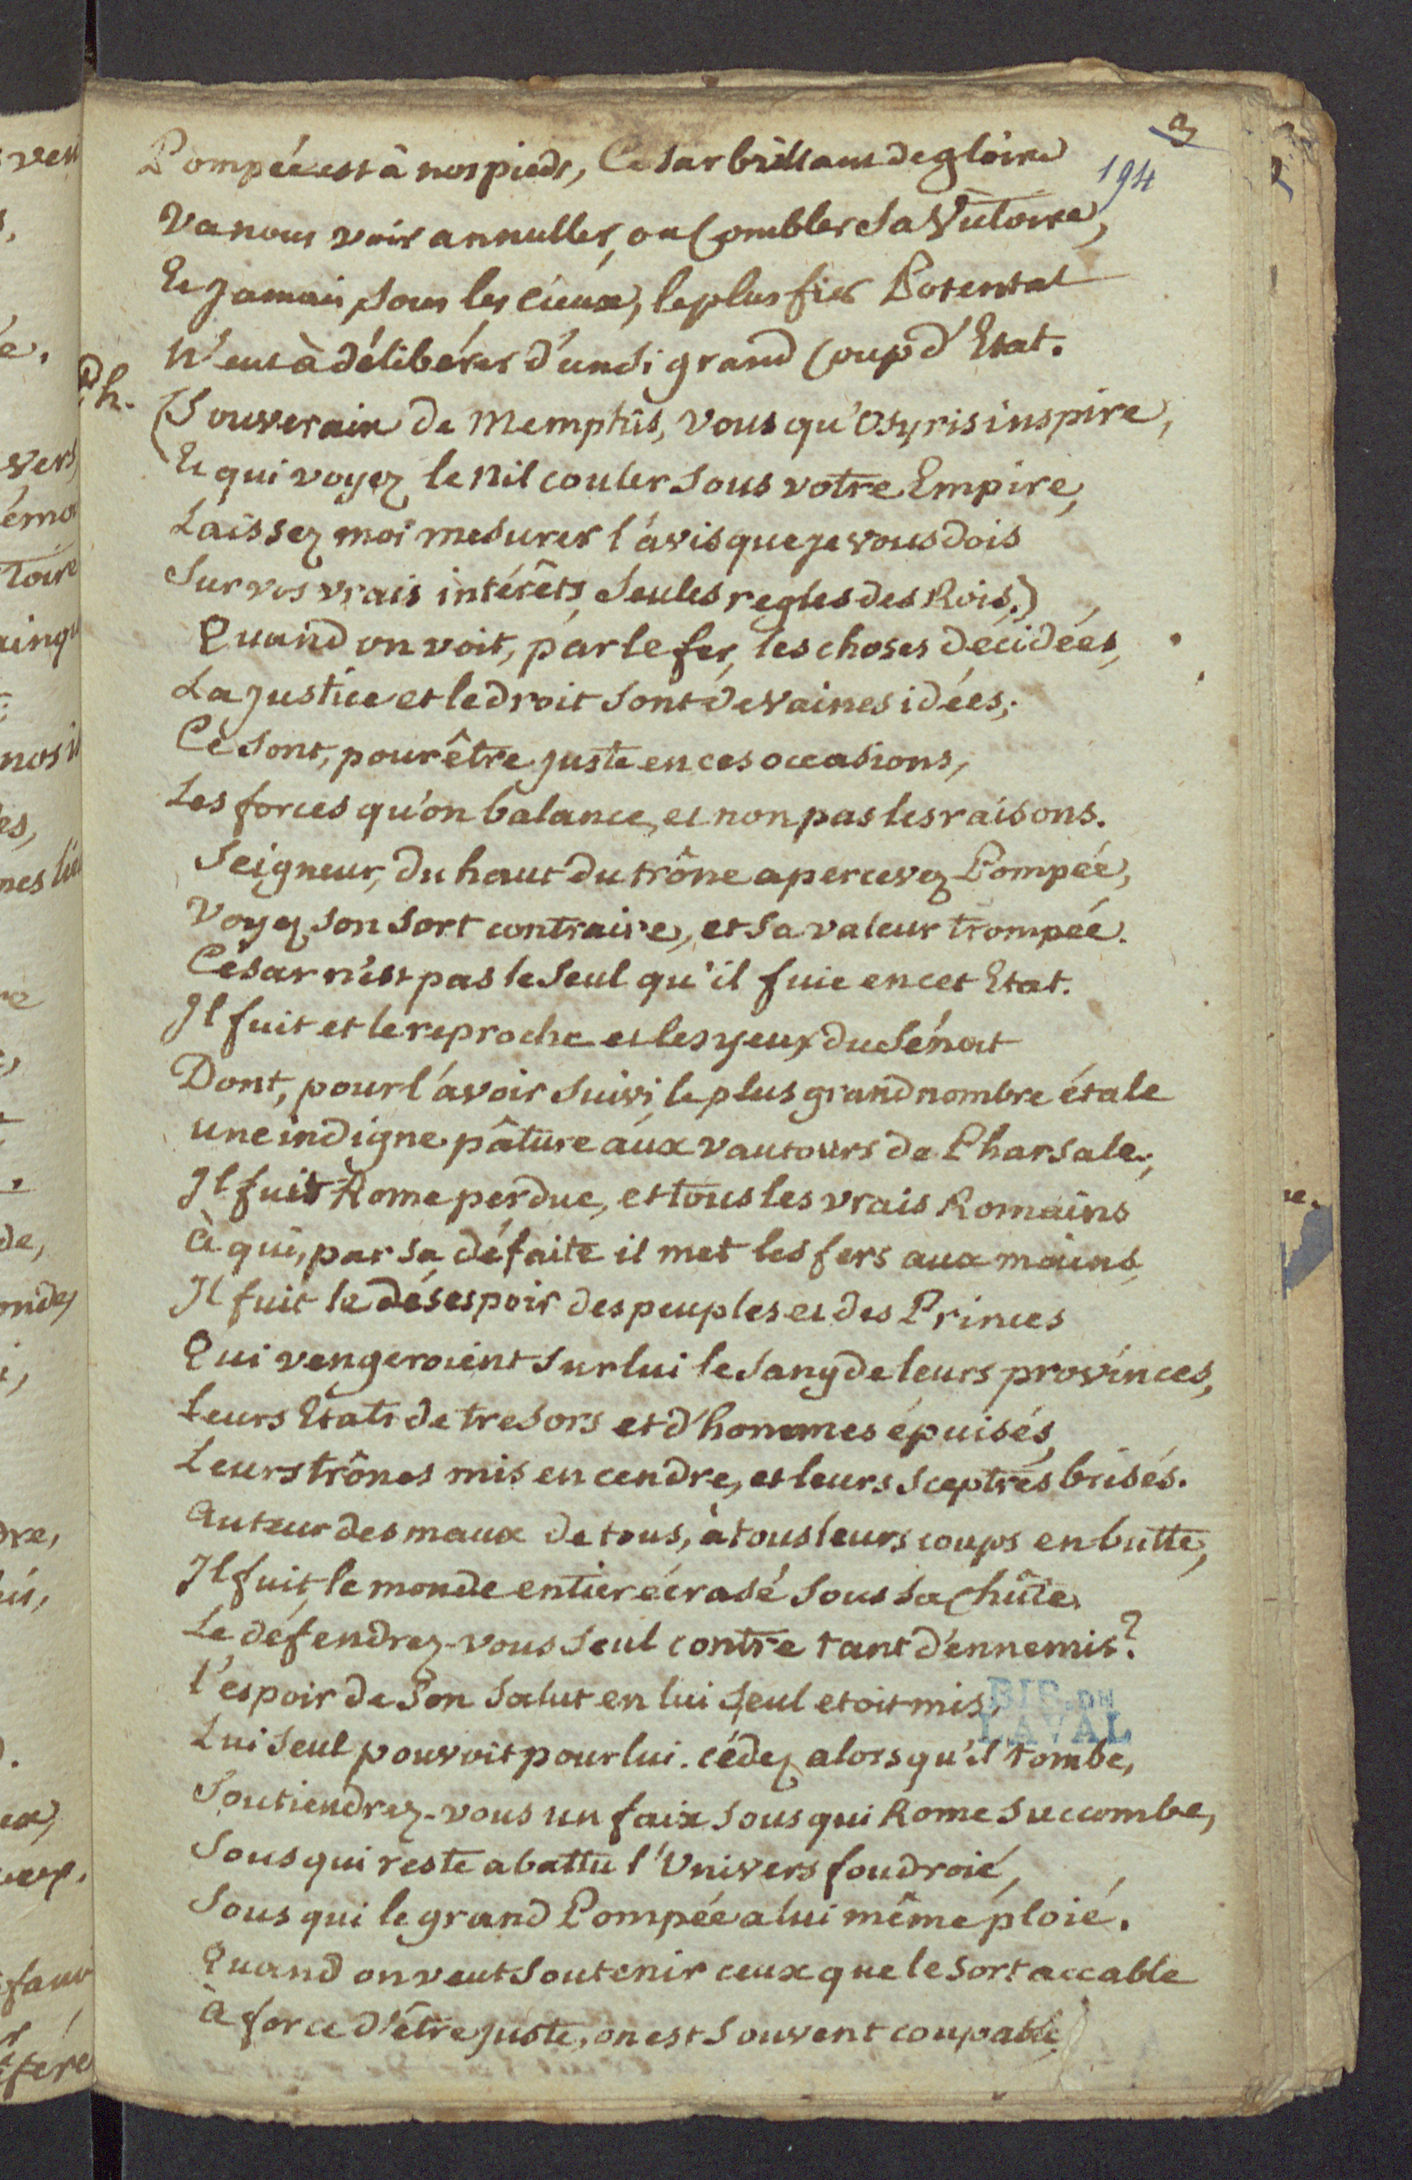 3
194
Pompée est à nos pieds, Cesar brillant de gloire
Va nous voir annuller, ou Combler Sa Victoire,
Et Jamais sous les Cieux, le plus fier Potentat
N'eut à délibérer d'un si grand Coup d'Etat.
Ph.
(Souverain de Memphis, vous qu'Osyris inspire,
Et qui voyez le Nil couler Sous votre Empire,
Laissez moi mesurer l'avis que je vous dois
Sur vos vrais intérêts, Seules regles des Rois.)
Quand on voit, par le fer, les choses décidées,
La Justice et le droit Sont de vaines idées;
Ce Sont, pour être Juste en ces occasions,
Les forces qu'on balance, et non pas les raisons.
Seigneur, du haut du trône apercevez Pompée,
Voyez son Sort contraire, et Sa valeur trompée.
César n'est pas le Seul qu'il fuie en cet Etat.
Il fuit et le reproche et les yeux du Sénat
Dont, pour l'avoir Suivi, le plus grand nombre étale
une indigne pâture aux vautours de Pharsale;
Il fuit Rome perdue, et tous les vrais Romains
à qui, par sa défaite il met les fers aux mains,
Il fuit le désespoir des peuples et des Princes
Qui vengeroient Sur lui le Sang de leurs provinces,
Leurs Etats de tresors et d'hommes épuisés,
Leurs trônes mis en cendre, et leurs Sceptres brisés.
Auteur des maux de tous, à tous leurs coups en butte,
Il fuit, le monde entier écrasé Sous sa chûte.
Le défendrez-vous Seul contre tant d'ennemis?
l'espoir de Son Salut en lui Seul etoit mis,
Lui Seul pouvoit pour lui. cédez alors qu'il tombe,
Soutiendrez-vous un faix Sous qui Rome Succombe,
Sous qui reste abattu l'Univers foudroié,
Sous qui le grand Pompée a lui même ploié.
Quand on veut Soutenir ceux que le Sort accable
à force d'être Juste, on est Souvent coupable
BIB. DE
LAVAL